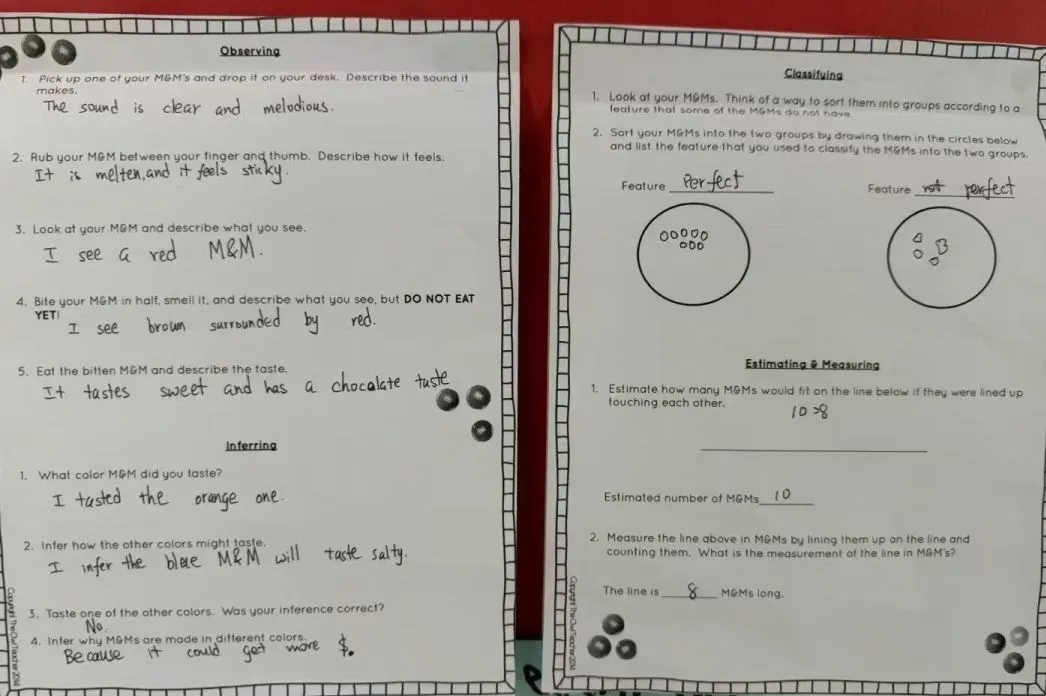 Observing
1. Pick up one of your M&M's and drop it on your desk. Describe the sound it
makes.
The sound is clear and melodious.
2. Rub your M&M between your finger and thumb. Describe how it feels.
It is melten, and it feels sticky.
3. Look at your M&M and describe what you see.
I see a red M&M.
4. Bite your M&M in half, smell it, and describe what you see, but DO NOT EAT
YET!
I see broun surrounded by red.
5. Eat the bitten M&M and describe the taste.
It tastes sweet and has a chocalate taste
Inferring
1. What color M&M did you taste?
I tasted the orange one.
2. Infer how the other colors might taste.
I infer the blue M&M will taste salty.
3. Taste one of the other colors. Was your inference correct?
No.
4. Infer why M&Ms are made in different colors.
Because it could get more $.
Copyright The Owl Teacher 2014
Classifying
1. Look at your M&Ms. Think of a way to sort them into groups according to a
feature that some of the M&Ms do not have.
2. Sort your M&Ms into the two groups by drawing them in the circles below
and list the feature that you used to classify the M&Ms into the two groups.
Feature Perfect
Feature not perfect
Estimating & Measuring
1. Estimate how many M&Ms would fit on the line below if they were lined up
touching each other.
10>8
Estimated number of M&Ms 10
2. Measure the line above in M&Ms by lining them up on the line and
counting them. What is the measurement of the line in M&M's?
The line is 8 M&Ms long.
Copyright The Owl Teacher 2014